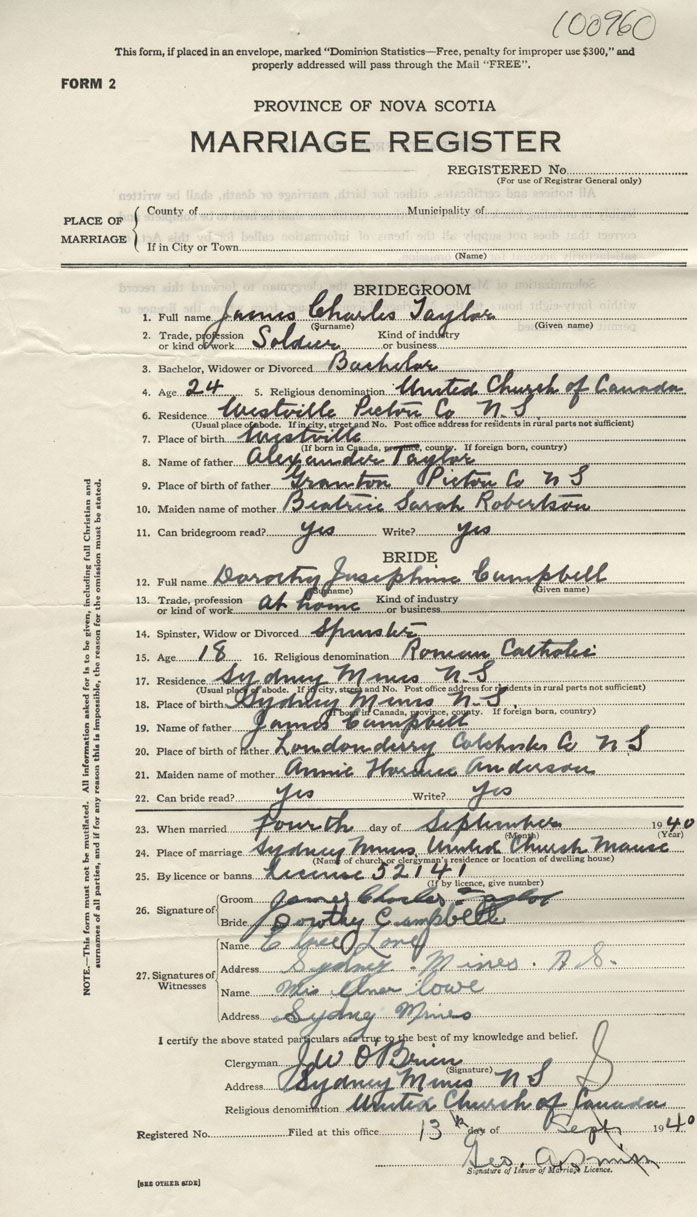 100960
This form, if placed in an envelope, marked "Dominion Statistics—Free, penalty for improper use $300," and
properly addressed will pass through the Mail "FREE".
FORM 2
PROVINCE OF NOVA SCOTIA
MARRIAGE REGISTER
REGISTERED No.
(For use of Registrar General only)
PLACE OF MARRIAGE
County of Municipality of
If in City or Town
(Name)
BRIDEGROOM
1. Full name James Charles Taylor
(Surname) (Given name)
2. Trade, profession or kind of work Soldier Kind of industry or business
3. Bachelor, Widower or Divorced Bachelor
4. Age 24 5. Religious denomination United Church of Canada
6. Residence Westville Pictou Co N.S.
(Usual place of abode. If in city, street and No. Post office address for residents in rural parts not sufficient)
7. Place of birth Westville
(If born in Canada, province, county. If foreign born, country)
8. Name of father Alexander Taylor
9. Place of birth of father Granton Pictou Co N S
10. Maiden name of mother Beatrice Sarah Robertson
11. Can bridegroom read? yes Write? yes
BRIDE
12. Full name Dorothy Josephine Campbell
(Surname) (Given name)
13. Trade, profession or kind of work at home Kind of industry or business
14. Spinster, Widow or Divorced Spinster
15. Age 18 16. Religious denomination Roman Catholic
17. Residence Sydney Mines N.S
(Usual place of abode. If in city, street and No. Post office address for residents in rural parts not sufficient)
18. Place of birth Sydney Mines N.S.
(If born in Canada, province, county. If foreign born, country)
19. Name of father James Campbell
20. Place of birth of father Londonderry Colchester Co N S
21. Maiden name of mother Annie Anderson
22. Can bride read? yes Write? yes
23. When married fourth day of September 1940
(Month) (Year)
24. Place of marriage Sydney Mines United Church Manse
(Name of church or clergyman's residence or location of dwelling house)
25. By licence or banns License 52141
(If by licence, give number)
26. Signature of
Groom James Charles Taylor
Bride Dorothy Campbell
27. Signatures of Witnesses
Name
Address Sydney Mines. N.S.
Name Mrs Lowe
Address Sydney Mines
I certify the above stated particulars are true to the best of my knowledge and belief.
Clergyman J W O'Brien
(Signature)
Address Sydney Mines N S
Religious denomination United Church of Canada
Registered No. Filed at this office 13th day of Sept 1940
Geo.
Signature of Issuer of Marriage Licence.
[SEE OTHER SIDE]
NOTE.—This form must not be mutilated. All information asked for is to be given, including full Christian and
surnames of all parties, and if for any reason this is impossible, the reason for the omission must be stated.